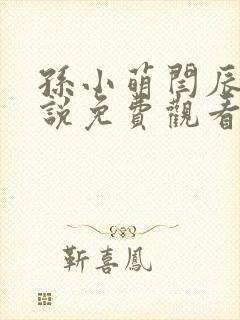 孫小萌閆辰
說免費觀看
靳喜鳳